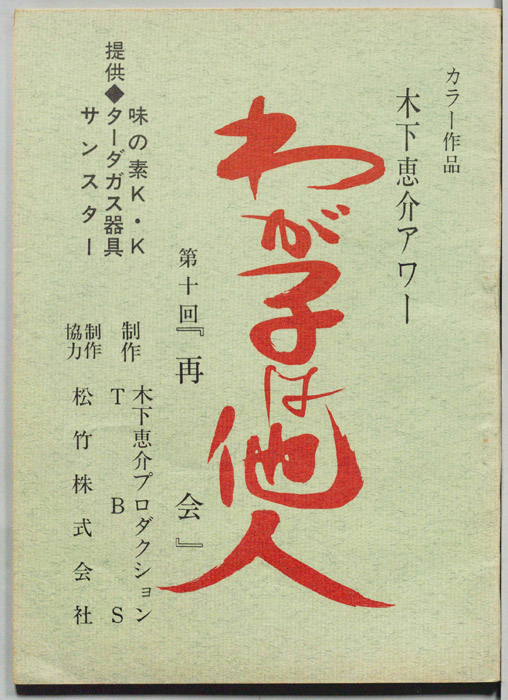 カラー作品
木下恵介アワー
わが子は他人
第十回『再会』
提供◆
味の素K・K
ターダガス器具
サンスター
制作
木下恵介プロダクション
TBS
制作協力
松竹株式会社